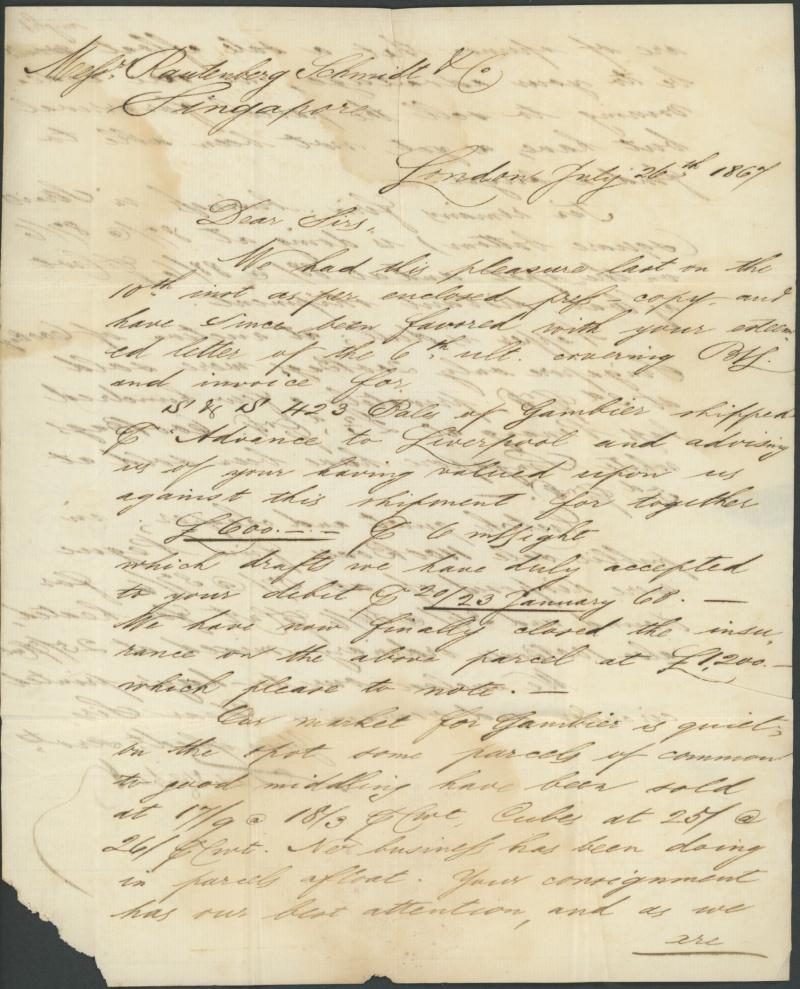 Messrs. Rautenberg Schmidt & Co
Singapore
London July 26th 1867
Dear Sirs,
We had this pleasure last on the
10th inst as per enclosed press-copy and
have since been favored with your esteem
ed letter of the 6th ult. covering B/L
and invoice for
423 Bales of Gambier shipped
"Advance" to Liverpool and advising
us of your having valued upon us
against this shipment for together
£600.-.- 6 m/sight
which drafts we have duly accepted
to your debit 20/23 January 68. —
We have now finally closed the insu,
rance on the above parcel at £1,200.—
which please to note. —
Our market for Gambier is quiet,
on the spot some parcels of common
to good middling have been sold
at 17/9 @ 18/3 ⅌ Cwt, Cubes at 25/ @
26/ ⅌ Cwt. No business has been doing
in parcels afloat. Your consignment
has our best attention, and as we
are